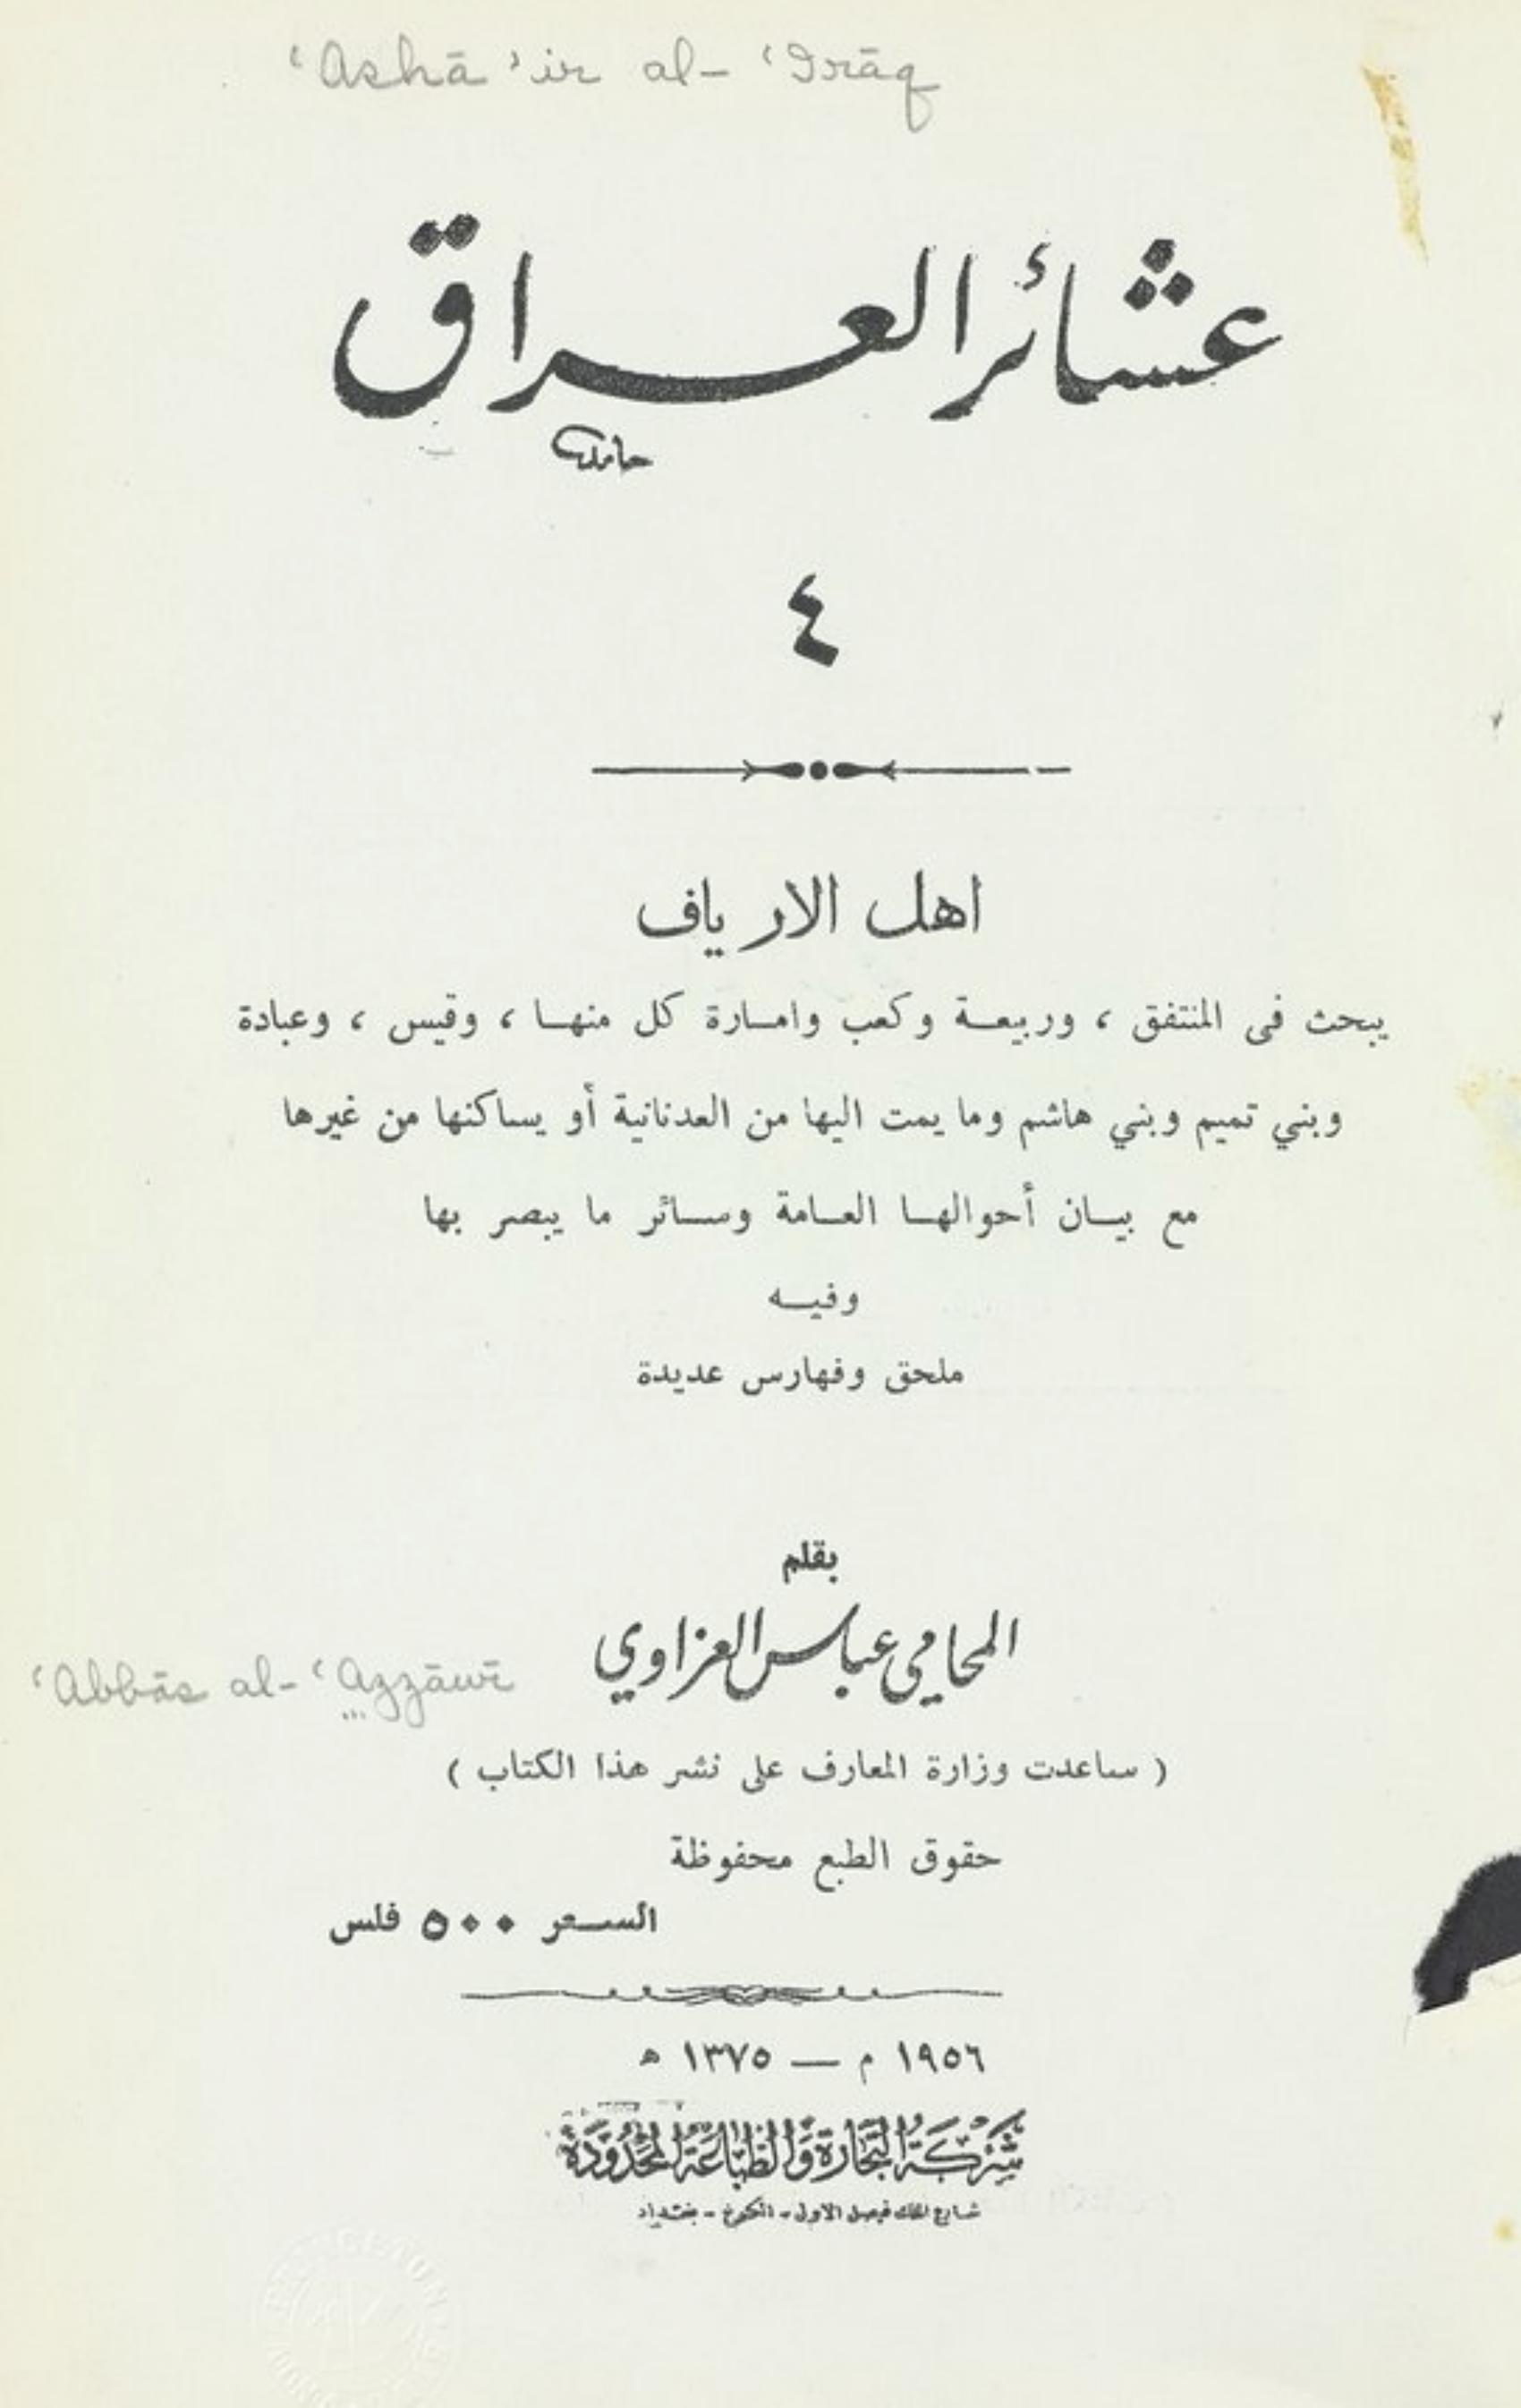 ‘Ashā’ir al-‘Irāq
عشائر العراق
٤
اهل الارياف
يبحث في المنتفق ، وربيعة وكعب وامارة كل منها ، وقيس ، وعبادة
وبني تميم وبني هاشم وما يمت اليها من العدنانية أو يساكنها من غيرها
مع بيان أحوالها العامة وسائر ما يبصر بها
وفيه
ملحق وفهارس عديدة
بقلم
المحامي عباس العزاوي
‘Abbās al-‘Azzāwī
( ساعدت وزارة المعارف على نشر هذا الكتاب )
حقوق الطبع محفوظة
السعر ٥٠٠ فلس
١٩٥٦ م — ١٣٧٥ ه
شَرِكَةُ التِّجَارَةِ وَالطِّبَاعَةِ المَحْدُودَة
شارع الملك فيصل الاول - الكرخ - بغداد